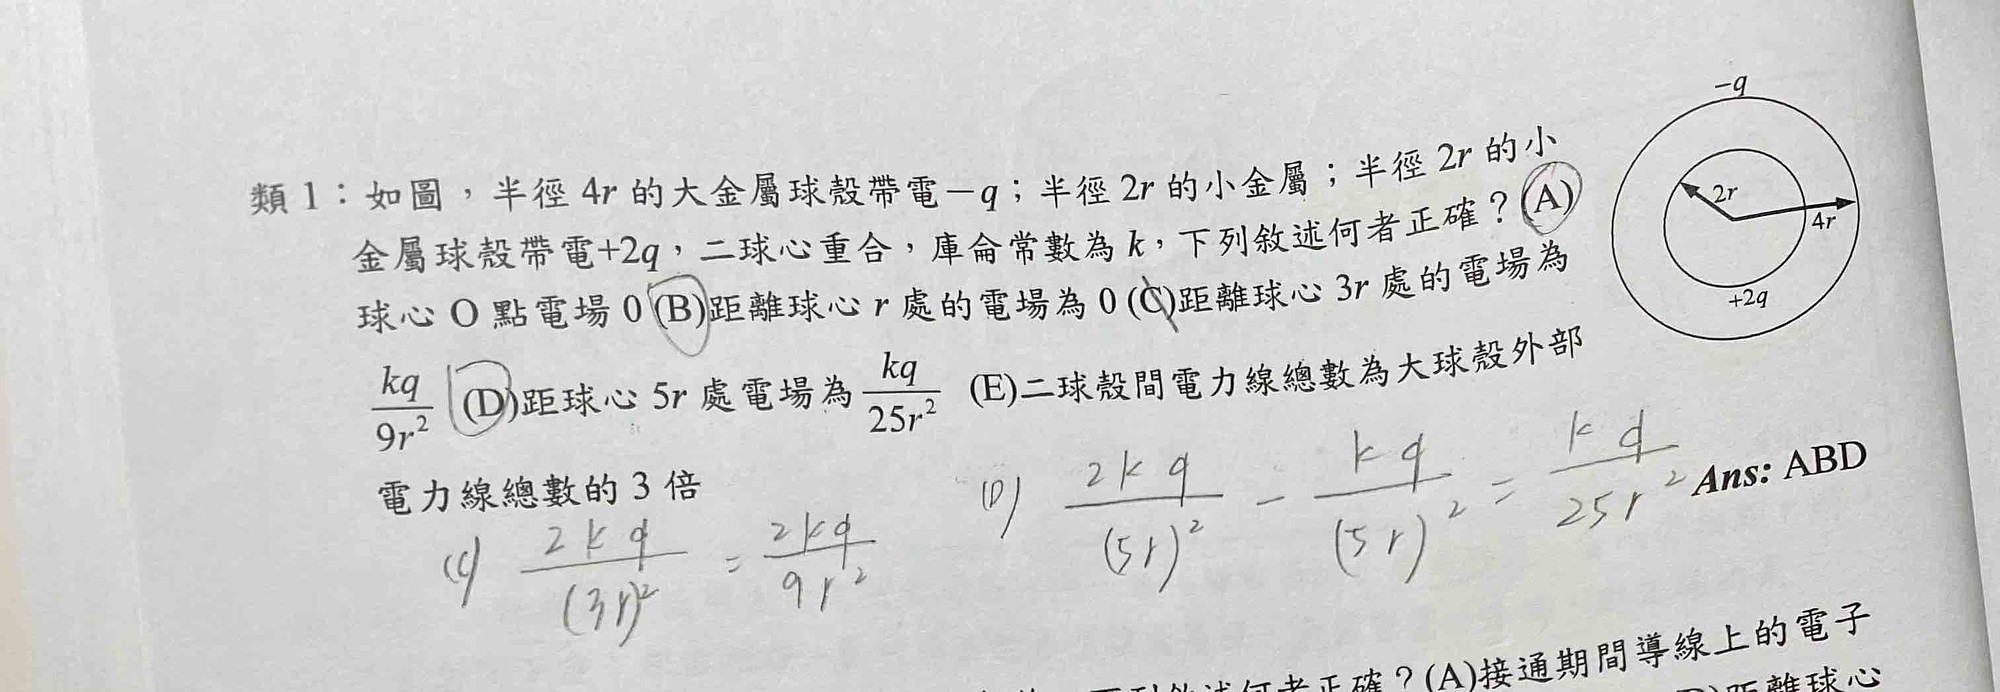 類1：如圖，半徑 4r 的大金屬球殼帶電－q；半徑 2r 的小金屬；半徑 2r 的小
金屬球殼帶電+2q，二球心重合，庫侖常數為 k，下列敘述何者正確？(A)
球心 O 點電場 0 (B)距離球心 r 處的電場為 0 (C)距離球心 3r 處的電場為
kq/9r² (D)距球心 5r 處電場為 kq/25r² (E)二球殼間電力線總數為大球殼外部
電力線總數的 3 倍
Ans: ABD
−q
2r
4r
+2q
(C) 2kq/(3r)² = 2kq/9r²
(D) 2kq/(5r)² − kq/(5r)² = kq/25r²
下列敘述何者正確？(A)接通期間導線上的電子
距離球心